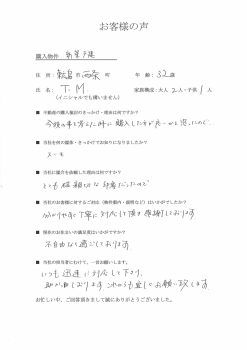 お客様の声
購入物件 新築戸建
住 所：敦賀市 西条 町 年 齢：32歳
氏 名：T.M 家族構成：大人 2人・子供 1人
(イニシャルでも構いません)
■ 不動産の購入検討のきっかけ・理由は何ですか？
今後の事を考えた時に購入した方が良いかと思ったので。
■ 当社を何の媒体・きっかけでお知りになりましたか？
■ 当社に仲介を依頼した理由は何ですか？
とても親切な対応だったので
■ 当社のお客様に対するご対応（物件案内・説明など）はいかがでしたか？
分かりやすく丁寧に対応して頂き感謝しております
■ 現在のお住まいの満足度はいかがですか？
不自由なく過ごしております
■ 当社の担当者にむけて、一言お願いします。
いつも迅速に対応して下さり、
助かっております これからも宜しくお願い致します
お忙しい中、ご回答頂きまして誠にありがとうございました。